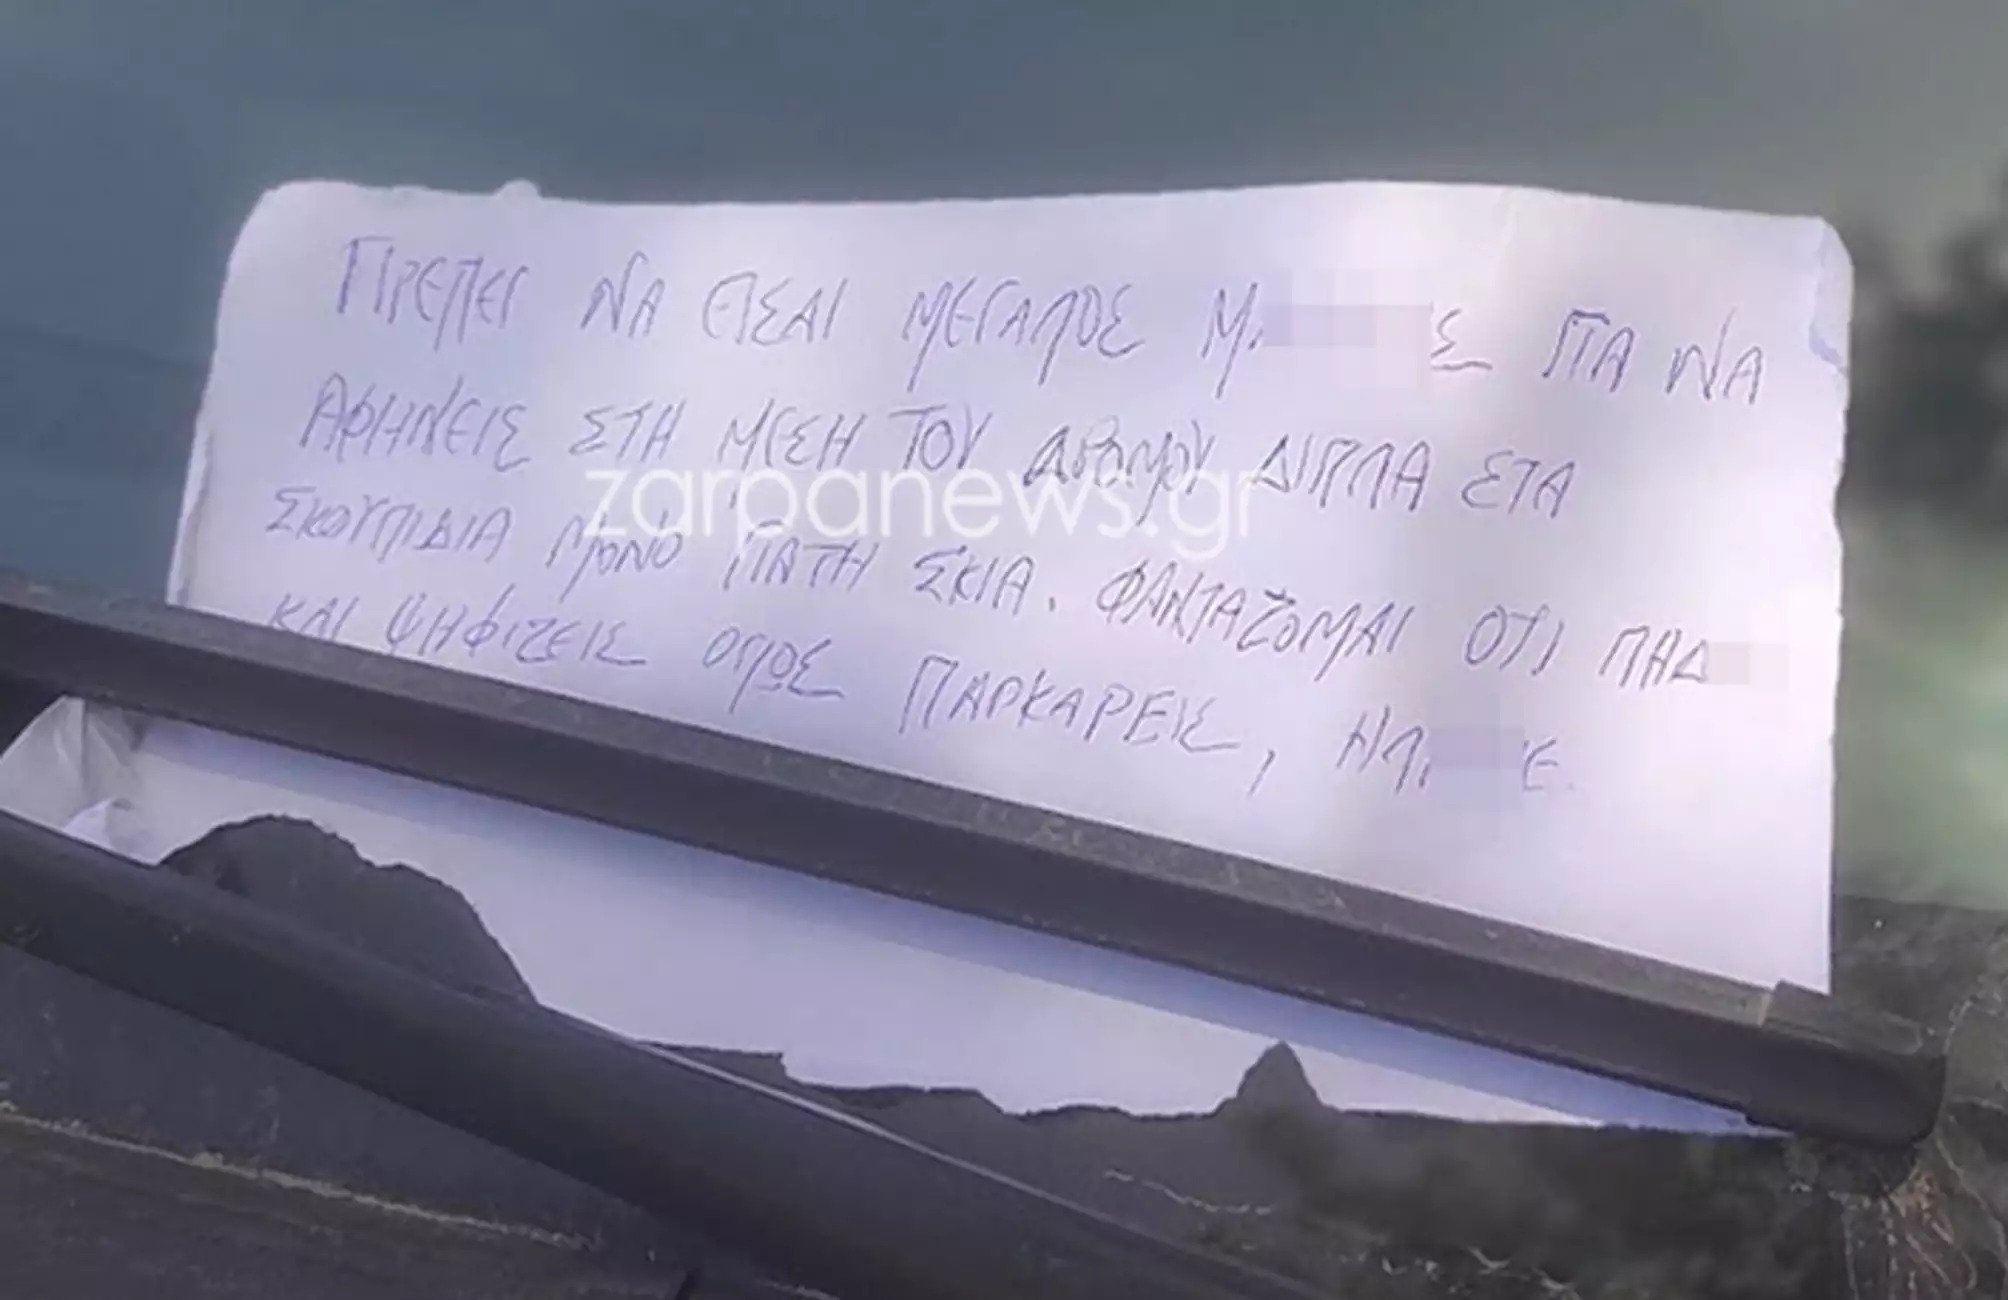 ΠΡΕΠΕΙ ΝΑ ΕΙΣΑΙ ΜΕΓΑΛΟΣ Μ Σ ΓΙΑ ΝΑ
ΑΦΗΝΕΙΣ ΣΤΗ ΜΕΣΗ ΤΟΥ ΔΡΟΜΟΥ ΔΙΠΛΑ ΣΤΑ
zarpanews.gr
ΣΚΟΥΠΙΔΙΑ ΜΟΝΟ ΓΙΑΤΙ ΣΚΙΑ. ΦΑΝΤΑΖΟΜΑΙ ΟΤΙ ΠΗΔ
ΚΑΙ ΨΗΦΙΖΕΙΣ ΟΠΩΣ ΠΑΡΚΑΡΕΙΣ, ΗΛ Ε.